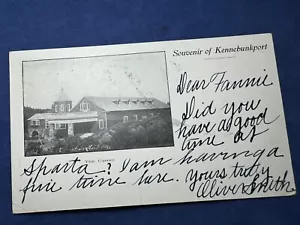 Souvenir of Kennebunkport
Dear Fannie
Did you
have a good
time at
Sparta? I am having a
fine time here. Yours truly
Oliver Smith
The Casino